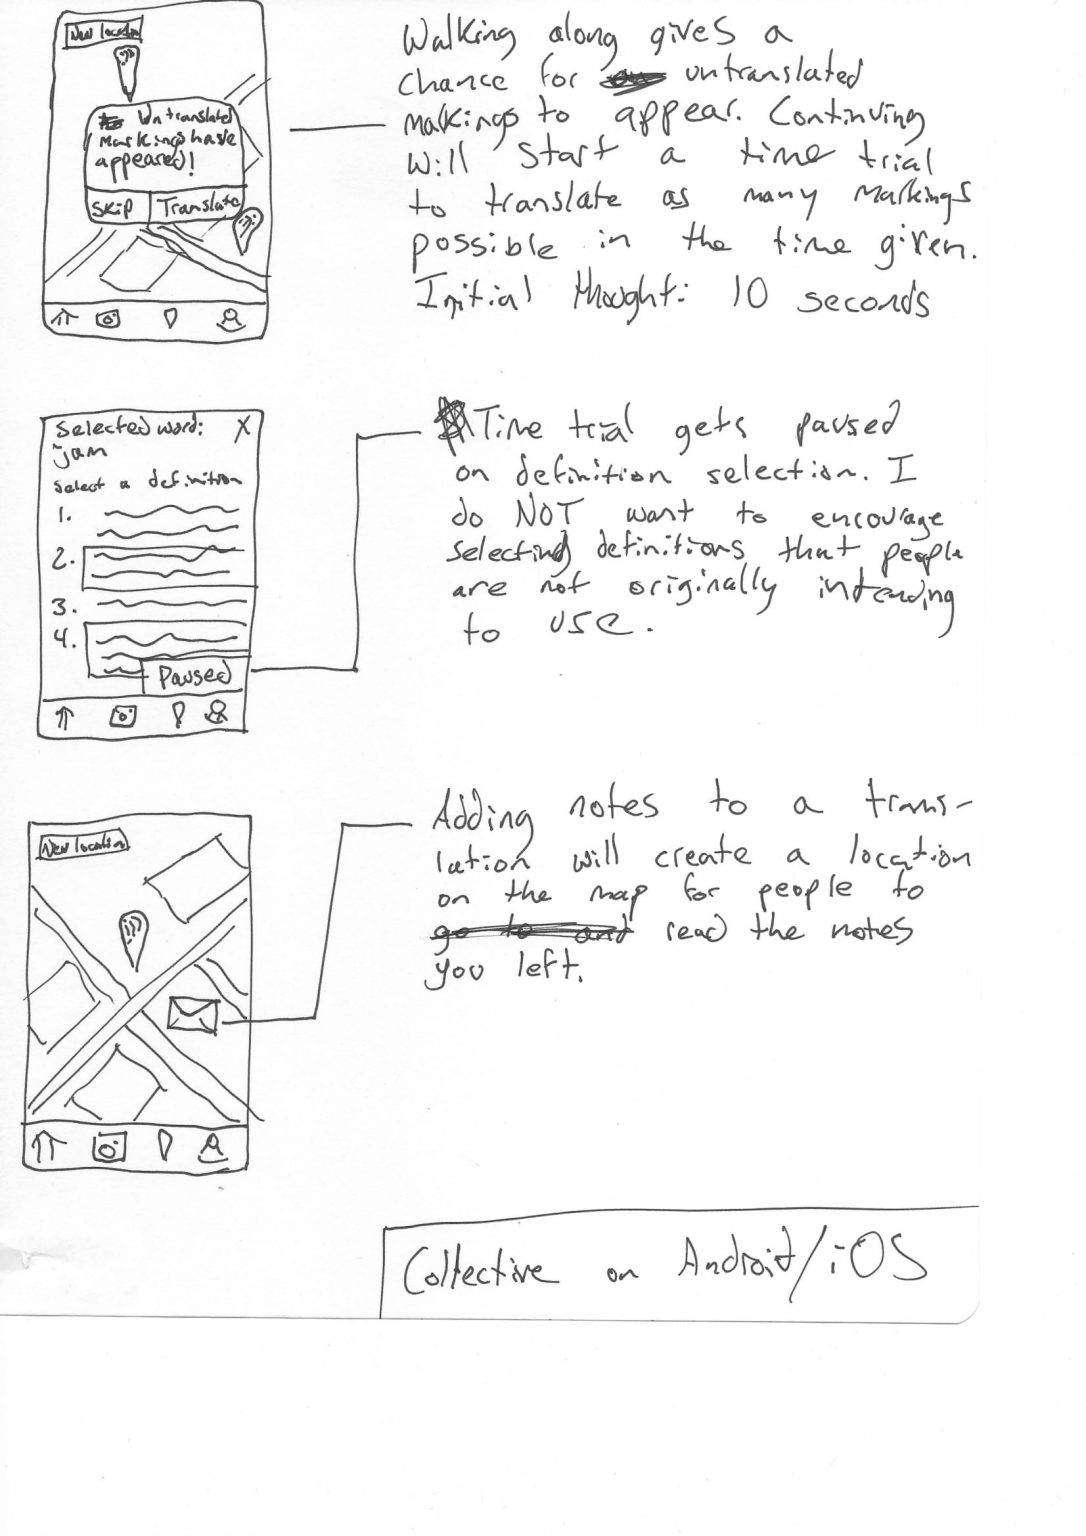 New location
Untranslated
Markings have
appeared!
Skip Translate
Walking along gives a
chance for untranslated
markings to appear. Continuing
will start a time trial
to translate as many markings
possible in the time given.
Initial thought: 10 seconds
Selected word: X
jam
Select a definition
1.
2.
3.
4.
Paused
Time trial gets paused
on definition selection. I
do NOT want to encourage
selecting definitions that people
are not originally intending
to use.
New location
Adding notes to a trans-
lation will create a location
on the map for people to
go to and read the notes
you left.
Collective on Android/iOS